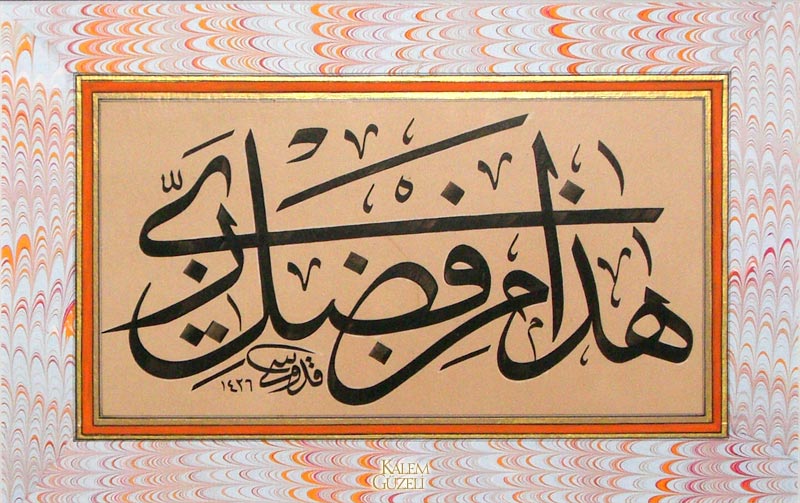 هذا من فضل ربي
قدوسي
١٤٢٦
KALEM
GÜZELİ